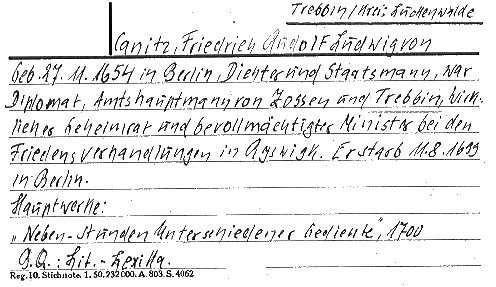 Trebbin/Kreis Luckenwalde
Canitz, Friedrich Rudolf Ludwig von
geb. 27. 11. 1654 in Berlin, Dichter und Staatsmann, war
Diplomat, Amtshauptmann von Zossen und Trebbin, Wirk-
licher Geheimrat und bevollmächtigter Minister bei den
Friedensverhandlungen in Ryswigk. Er starb 11. 8. 1699
in Berlin.
Hauptwerke:
"Neben-Stunden Unterschiedener Gedichte", 1700
Q.Q.: Lit.-Lexika.
Reg. 10. Stichnote. 1. 50. 232 000. A. 803. S. 4062